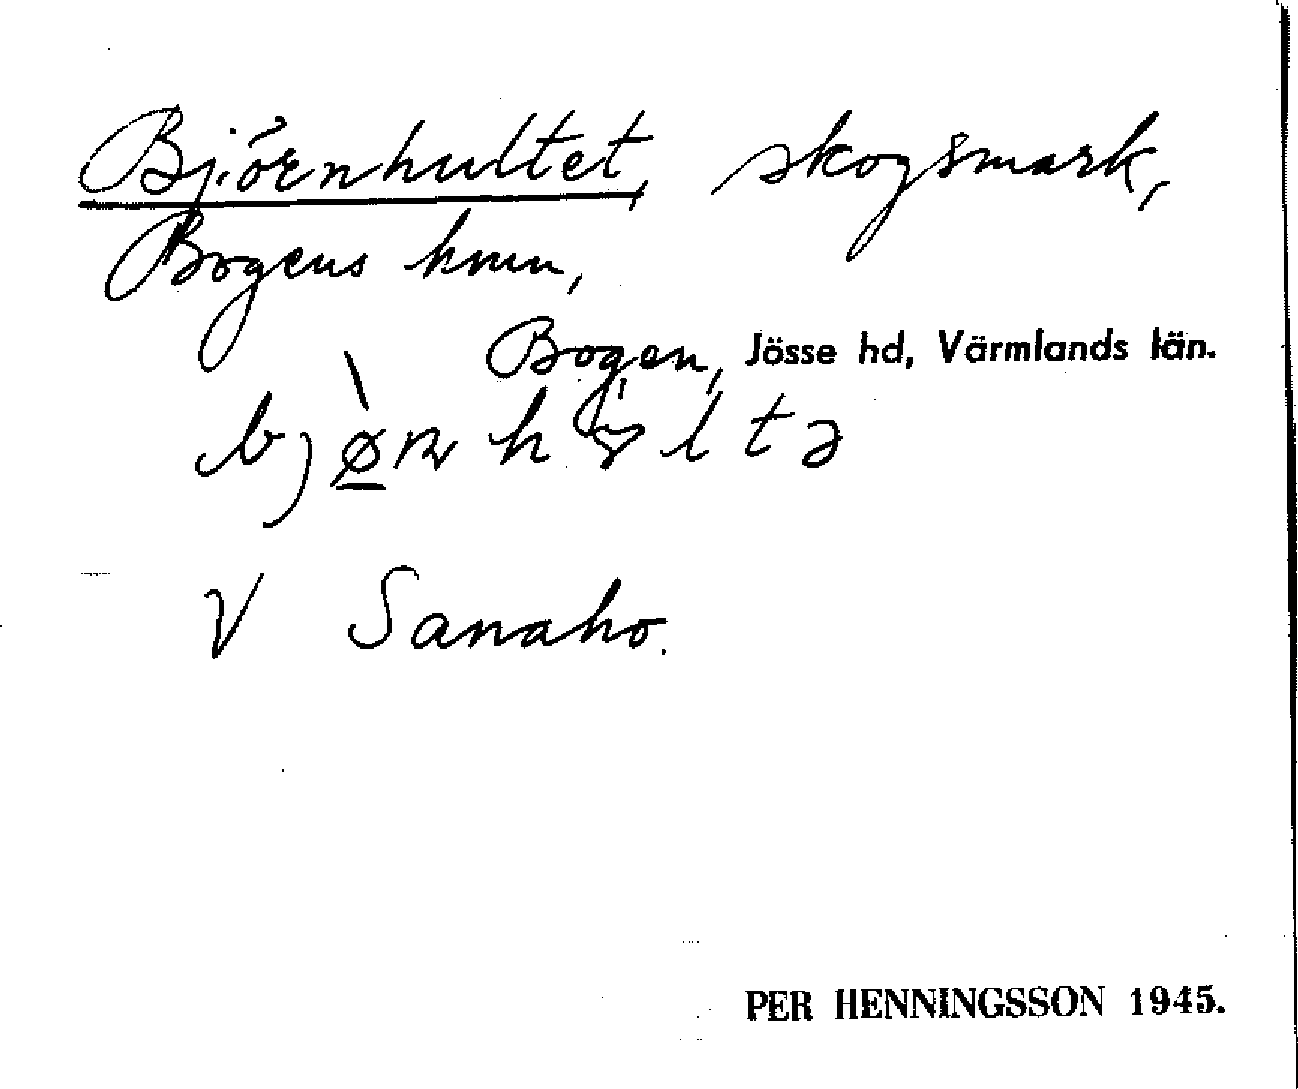 Björnhultet, skogsmark,
Bogens kmn,
Bogen, Jösse hd, Värmlands län.
V Sanaho.
PER HENNINGSSON 1945.